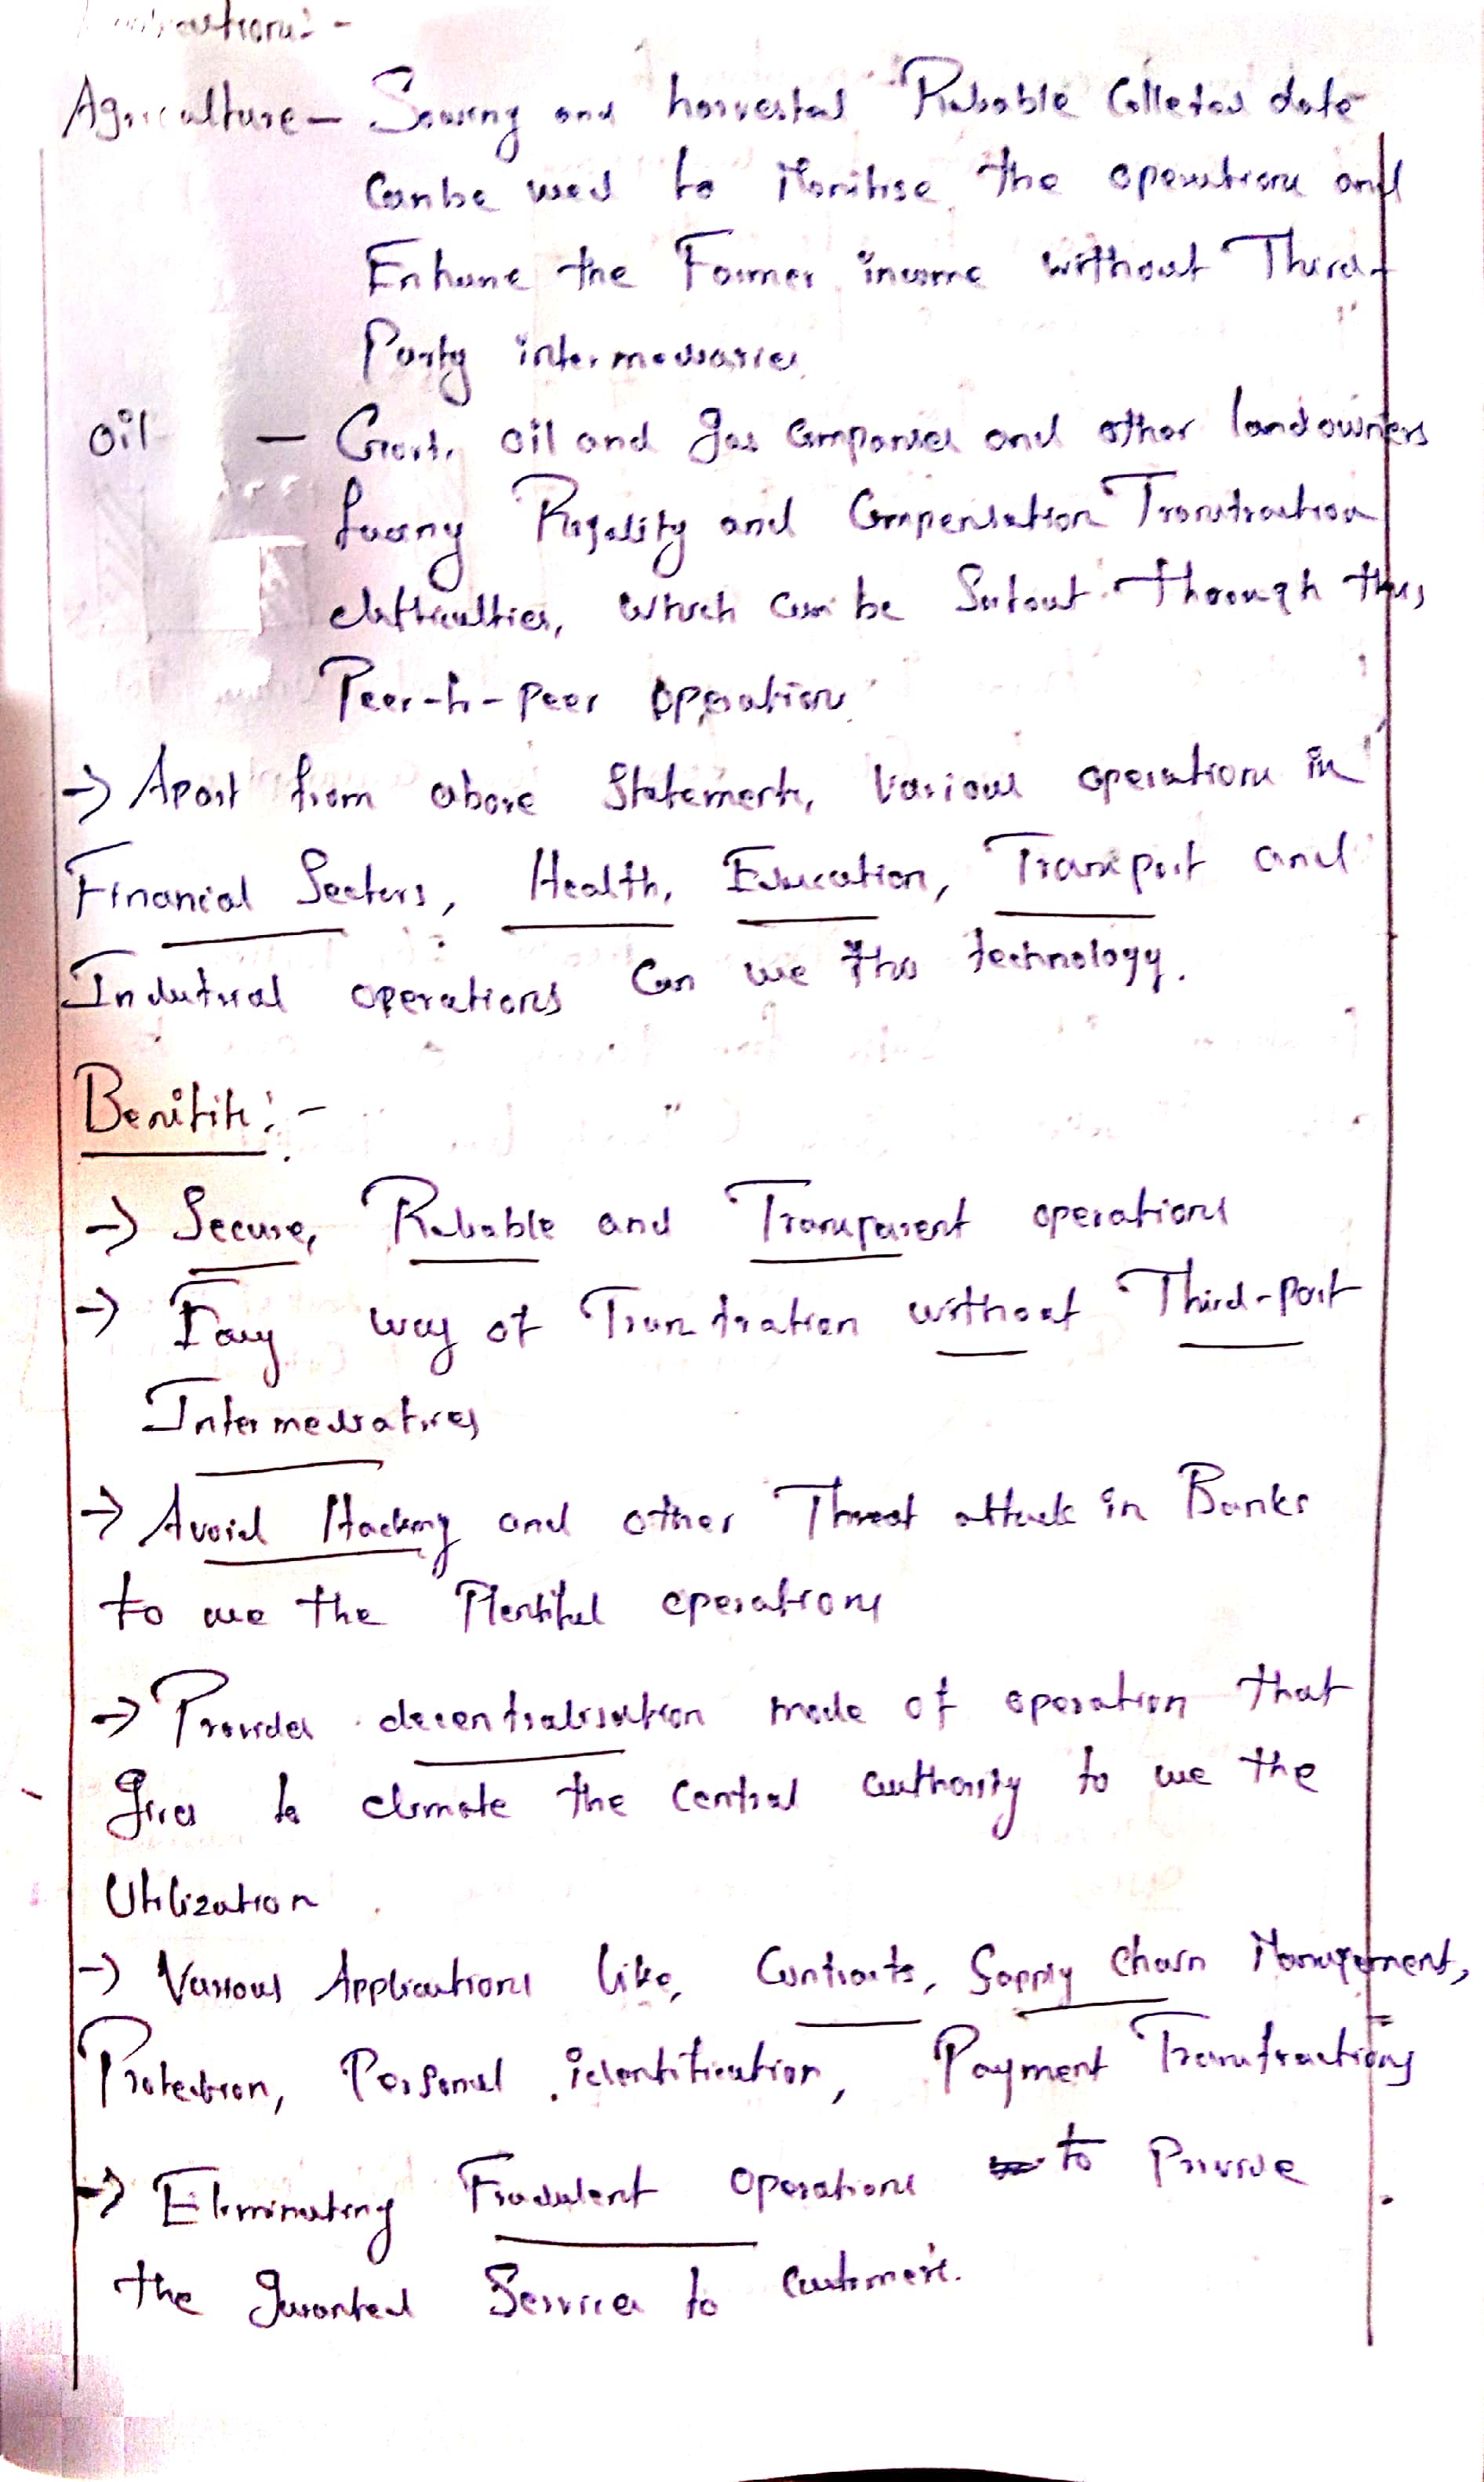 Agriculture - Sowing and harvestal Reliable Colleted data
Can be used to Monitise the operations and
Enhane the Farmer income without Third-
Party intermediaries
Oil - Govt. oil and gas Companies and other landowners
facing Royality and Compensation Transtraction
difficulties, which can be Sortout through this
Peer-to-peer operations
→ Apart from above Statements, Various operations in
Financial Sectors, Health, Education, Transport and
Industrial operations Can use this technology.
Benifits:-
→ Secure, Reliable and Transparent operations
→ Easy way of Transtration without Third-part
Intermediatries
→ Avoid Hacking and other Threat attack in Banks
to use the Plentiful operations
→ Provides decentralisation mode of operation that
gives to climate the central authority to use the
Utilization
→ Various Applications like, Contracts, Supply Chain Management,
Protection, Personal identification, Payment Transtractions
→ Eliminating Fradulent Operations to Provide
the guranted Services to customers.